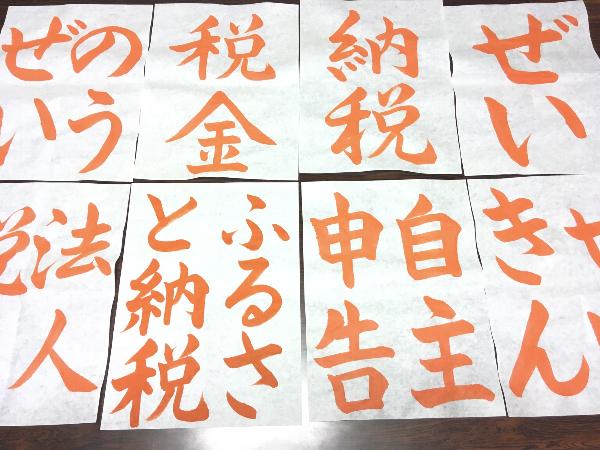 のう
ぜい
税金
納税
ぜい
法人
ふるさ
と納税
自主
申告
きん